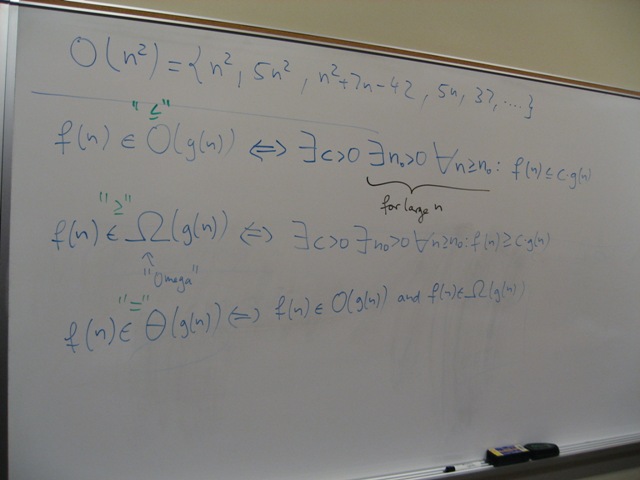 O(n²) = { n², 5n², n²+7n-42, 5n, 37, .... }
"≤"
f(n) ∈ O(g(n)) ⇔ ∃c>0 ∃n₀>0 ∀n≥n₀: f(n) ≤ c·g(n)
for large n
"≥"
f(n) ∈ Ω(g(n)) ⇔ ∃c>0 ∃n₀>0 ∀n≥n₀: f(n) ≥ c·g(n)
↑
"Omega"
"="
f(n) ∈ Θ(g(n)) ⇔ f(n) ∈ O(g(n)) and f(n) ∈ Ω(g(n))